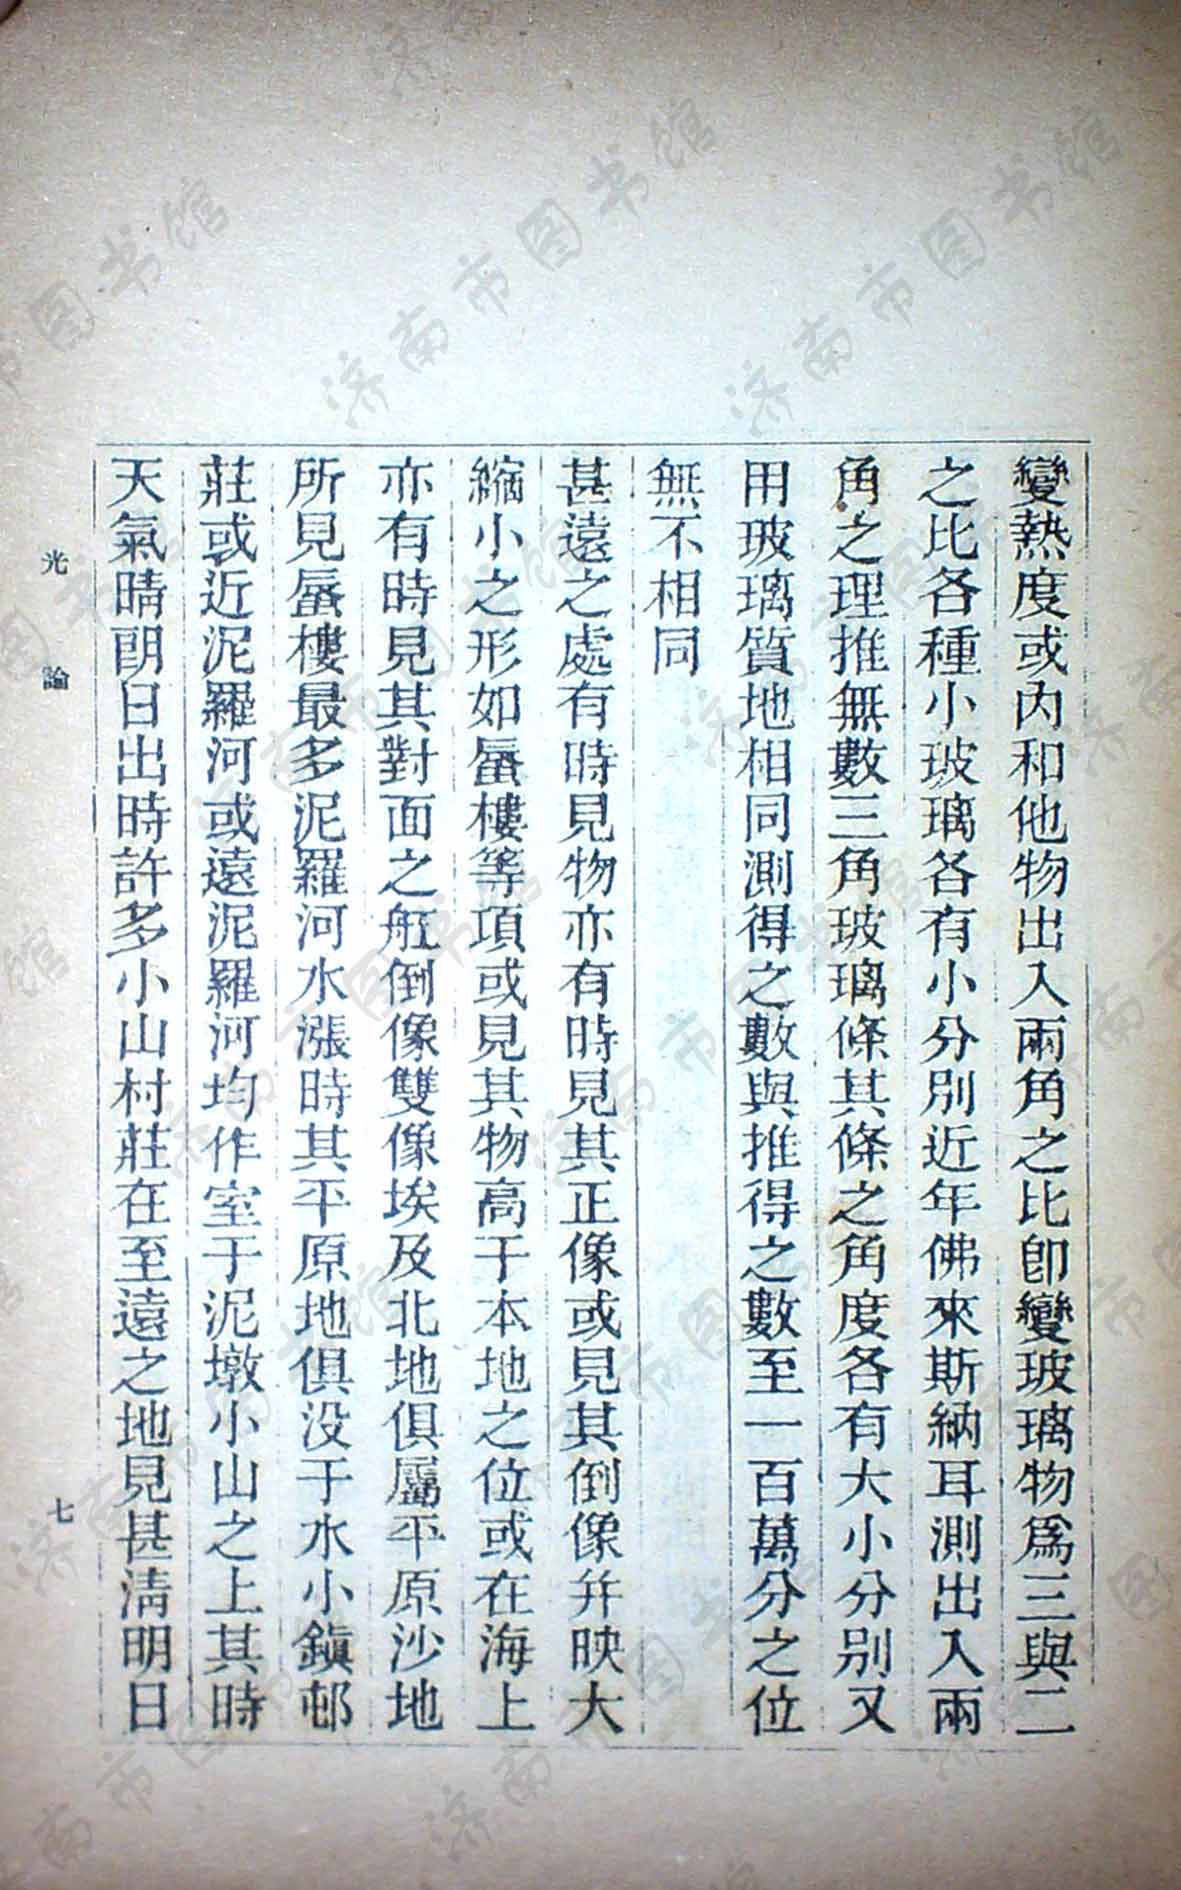 變熱度或內和他物出入兩角之比卽變玻璃物爲三與二
之比各種小玻璃各有小分別近年佛來斯納耳測出入兩
角之理推無數三角玻璃條其條之角度各有大小分別又
用玻璃質地相同測得之數與推得之數至一百萬分之位
無不相同
甚遠之處有時見物亦有時見其正像或見其倒像幷映大
縮小之形如蜃樓等項或見其物高于本地之位或在海上
亦有時見其對面之舡倒像雙像埃及北地俱屬平原沙地
所見蜃樓最多泥羅河水漲時其平原地俱没于水小鎭邨
莊或近泥羅河或遠泥羅河均作室于泥墩小山之上其時
天氣晴朗日出時許多小山村莊在至遠之地見甚淸明日
光論
七
济南市图书馆